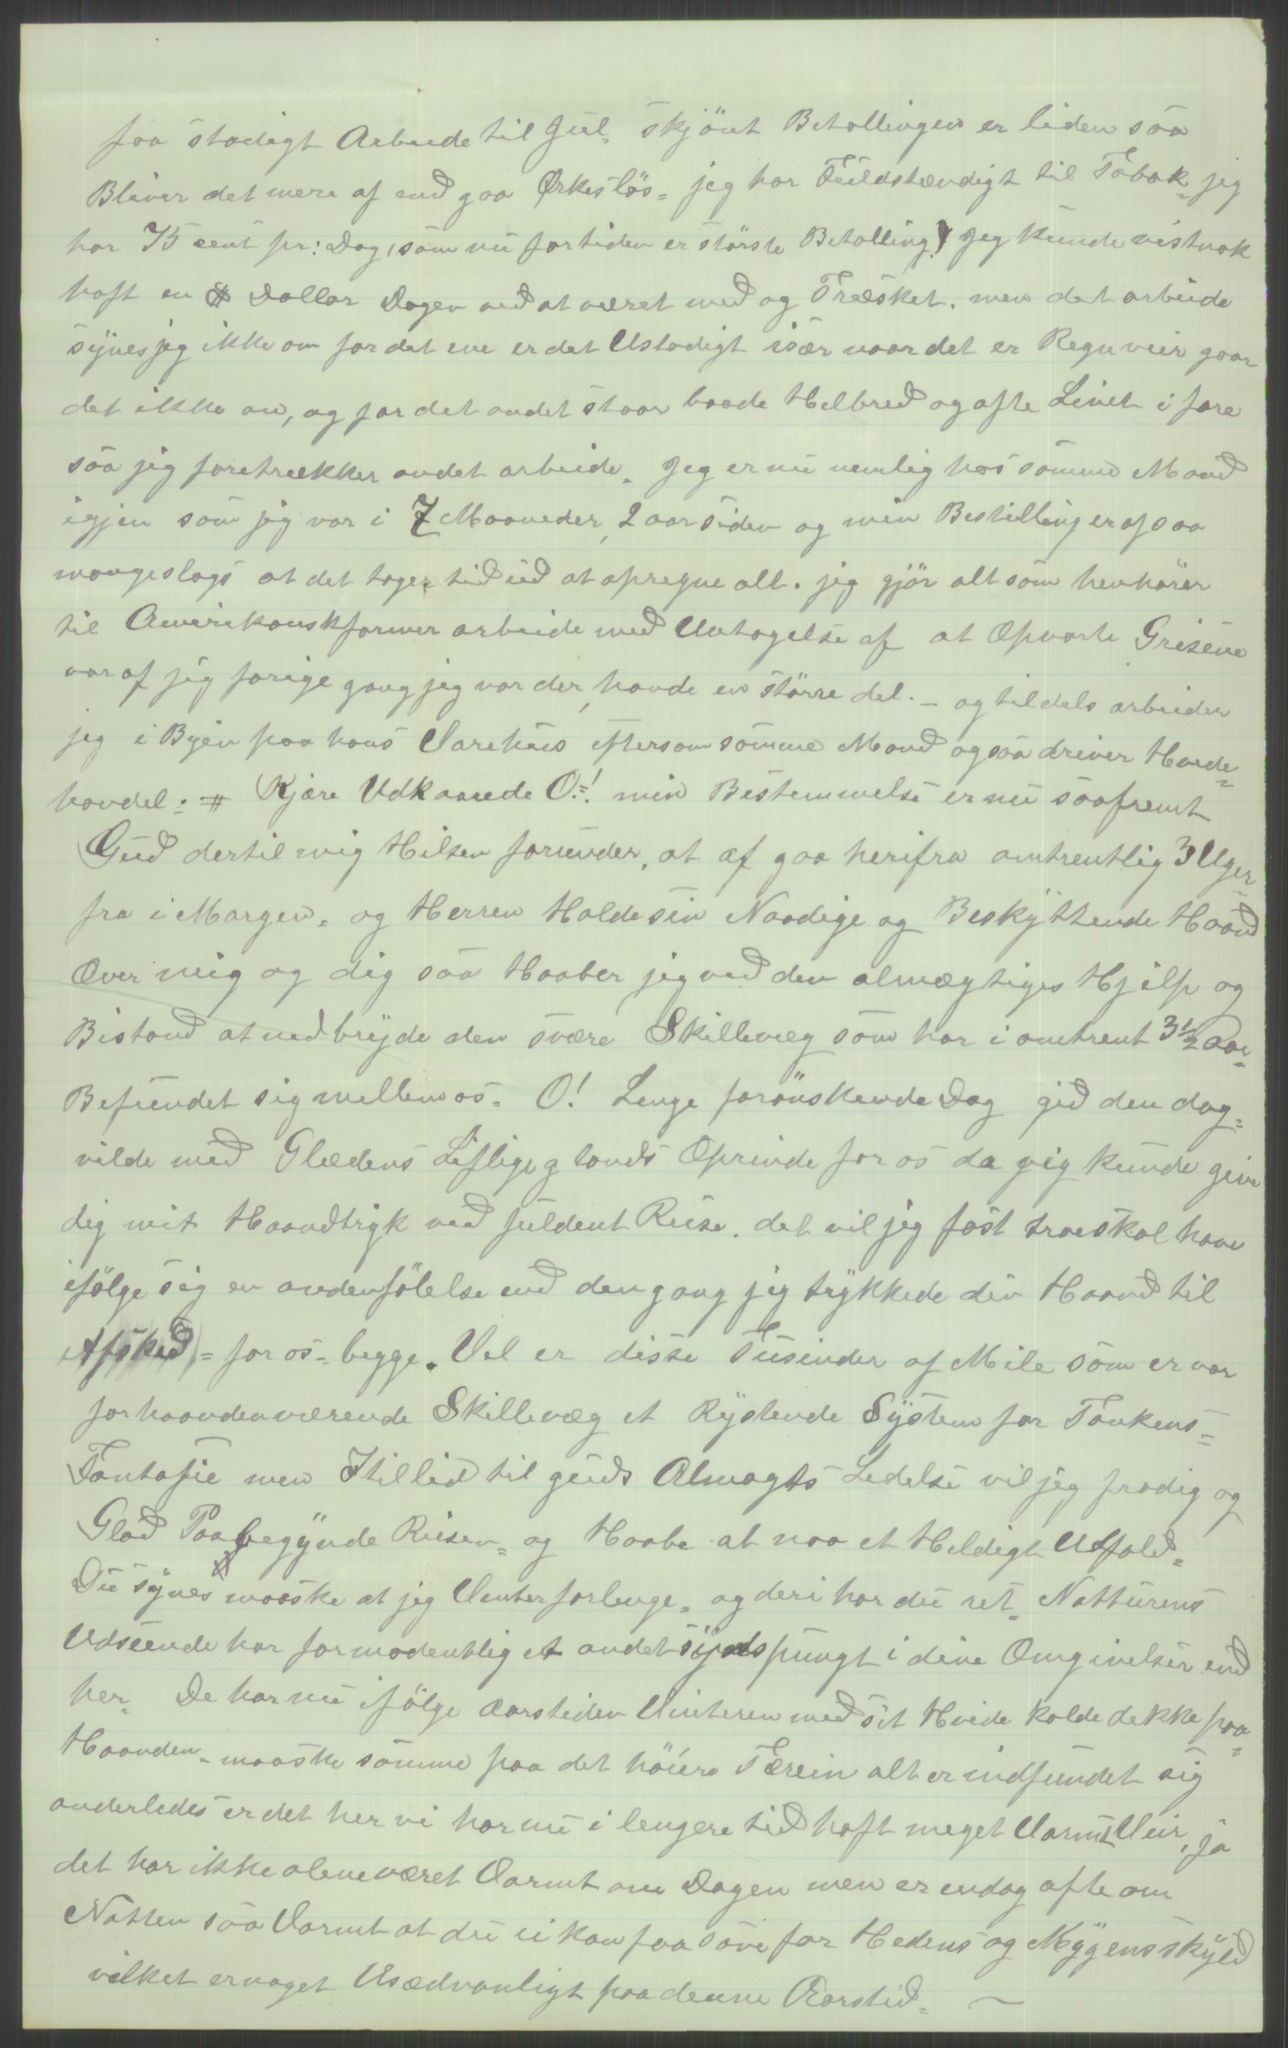 faa stadigt Arbeide til Jul. skjönt Betallingen er liden saa
Bliver det mere af end gaa Ørkeslös = jeg har Fuldstændigt til Tobak, jeg
har 75 cent pr: Dag, (som nu fortiden er störste Betalling) Jeg kunde vistnok
haft en Dollar Dagen ved at været med og Træsket. men det arbeide
synes jeg ikke om for det ene er det Ustadigt især naar det er Regnveir gaar
det ikke an, og for det andet staar baade Helbred og ofte Livet i fare
saa jeg foretrækker andet arbeide. Jeg er nu nemlig hos samme Mand
igjen som jeg var i 7 Maaneder, 2 aar siden og min Bestilling er af saa
mangeslags at det tager tid ud at opregne alt. jeg gjör alt som henhörer
til Amerikanskfarmer arbeide med Untagelse af at Opvarte Grisene
var af jeg forige gang jeg var der, havde en större del. - og tildels arbeider
jeg i Byen paa hans Varehus eftersom samme Mand ogsaa driver Hvede-
handel. = # Kjære Udkaarede O.=! min Bestemmelse er nu saafremt
Gud dertil mig Hilsen forunder, at af gaa herifra omtrentlig 3 Uger
fra i Morgen. og Herren Holde sin Naadige og Beskyttende Haand
Over mig og dig saa Haaber jeg ved den almægtiges Hjelp og
Bistand at nedbryde den svære Skillevæg som har i omtrent 3½ Aar
Befundet sig mellem os. O! Lenge forönskende Dag gid den dag-
vilde med Glædens Liflige glands Oprinde for os da jeg kunde give
dig mit Haandtryk ved fuldent Reise. det vil jeg fast troe skal have
ifölge sig en andenfölelse end den gang jeg trykkede din Haand til
Afsked = for os = begge. Vel er disse Tusinder af Mile som er vor
forhaandenværende Skillevæg et Rystende System for Tankens =
Fantasie men Itillid til guds Almagts Ledelse vil jeg frodig og
Glad Paabegynde Reisen = og Haabe at naa et Heldigt Udfald =
Du synes maaske at jeg Venter forlenge = og deri har du ret. Natturens
Udseende har formodentlig et andet synspungt i dine Omgivelser end
her. De har nu ifölge aarstiden Vinteren med sit Hvide kolde dekke paa
Haanden = maaske samme paa det höiere Terein alt er indfundet sig
anderledes er det her vi har nu i lengere tid haft meget Varmt Veir, ja
det har ikke alene været Varmt om Dagen men er endog ofte om
Natten saa Varmt at du ei kan faa sove for Hedens og Myggens skyld
vilket er noget Usædvanligt paa denne Aarstid. ~